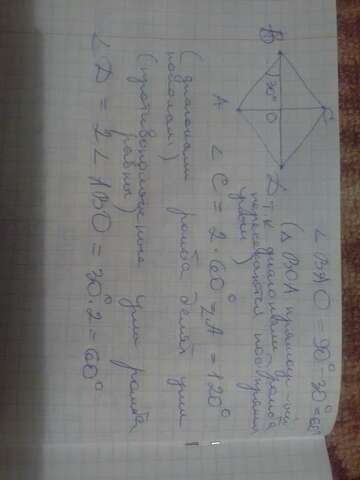 B
30°
O
C
A
D
∠ BAO = 90° - 30° = 60°
(Δ BOA прямоуг-ый
т.к диагонали ромба
пересекаются под прямым
углом)
∠ C = 2 · 60° = ∠A = 120°
(диагонали ромба делят углы
пополам)
(противоположные углы ромба
равны)
∠ D = 2 ∠ ABO = 30° · 2 = 60°